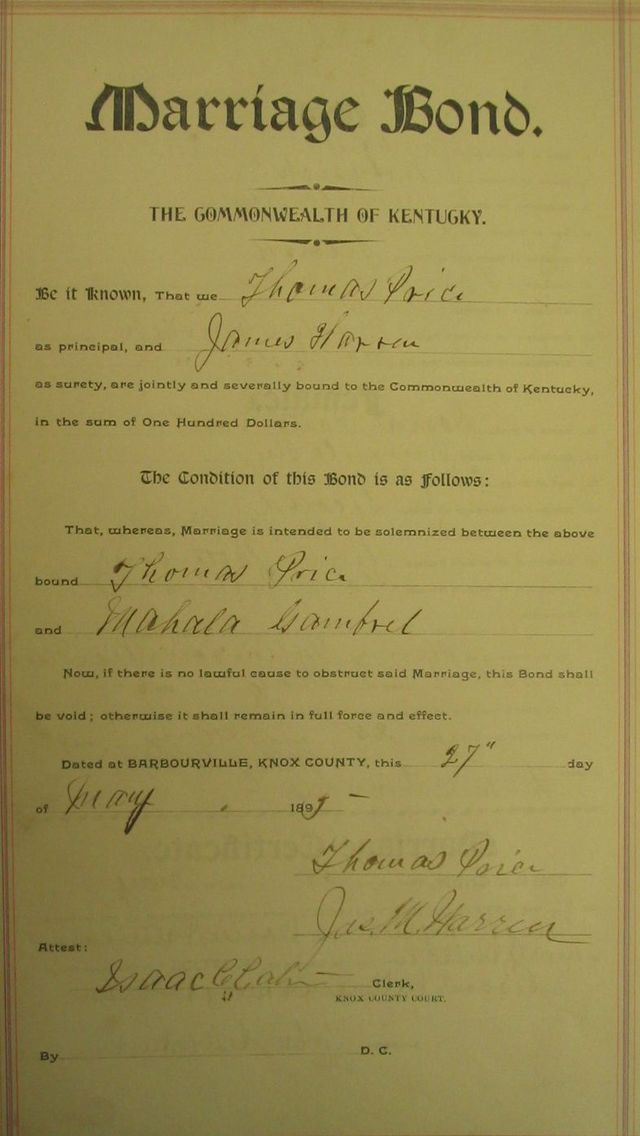 Marriage Bond.
THE COMMONWEALTH OF KENTUCKY.
Be it Known, That we Thomas Price
as principal, and James Harren
as surety, are jointly and severally bound to the Commonwealth of Kentucky,
in the sum of One Hundred Dollars.
The Condition of this Bond is as Follows:
That, whereas, Marriage is intended to be solemnized between the above
bound Thomas Price
and Mahala Gambrel
Now, if there is no lawful cause to obstruct said Marriage, this Bond shall
be void; otherwise it shall remain in full force and effect.
Dated at BARBOURVILLE, KNOX COUNTY, this 27" day
of May 189
Thomas Price
Jas. M. Harren
Attest:
Isaac Clerk,
KNOX COUNTY COURT.
By D. C.